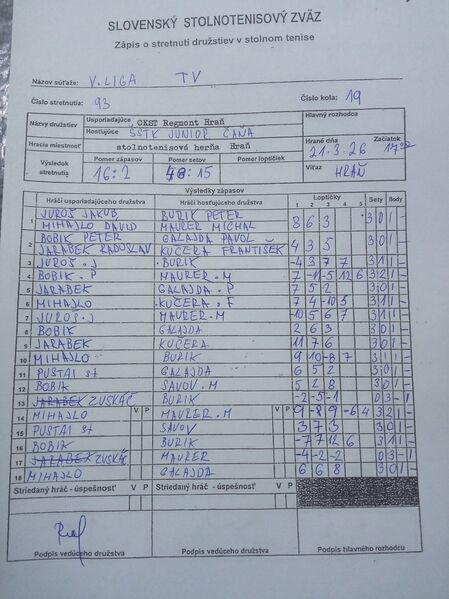 SLOVENSKÝ STOLNOTENISOVÝ ZVÄZ
Zápis o stretnutí družstiev v stolnom tenise
Názov súťaže: V. LIGA TV
Číslo stretnutia: 93 Číslo kola: 19
Názvy družstiev Usporiadajúce OKST Regmont Hraň Hlavný rozhodca
Hosťujúce ŠSTK JUNIOR ČAŇA
Hracia miestnosť stolnotenisová herňa Hraň Hrané dňa 21.3.26 Začiatok
Výsledok stretnutia Pomer zápasov 16:2 Pomer setov 48:15 Pomer loptičiek Víťaz HRAŇ
Výsledky zápasov
Hráči usporiadajúceho družstva Hráči hosťujúceho družstva Loptičky 1 2 3 4 5 Sety Body
1 JUROŠ JAKUB BURIK PETER 8 6 3 3 0 1 -
MIHAJLO DAVID MAURER MICHAL
2 BOBIK PETER GALAJDA PAVOL 4 3 5 3 0 1 -
JARABEK RADOSLAV KUČERA FRANTIŠEK
3 JUROŠ . J BURIK -4 3 7 7 3 1 1 -
4 BOBIK . P MAURER . M 7 -11 -5 12 6 3 2 1 -
5 JARABEK GALAJDA . P 7 5 2 3 0 1 -
6 MIHAJLO KUČERA . F 7 4 -10 5 3 1 1 -
7 JUROŠ . J MAURER . M -10 5 6 7 3 1 1 -
8 BOBIK GALAJDA 2 6 3 3 0 1 -
9 JARABEK KUČERA 11 7 6 3 0 1 -
10 MIHAJLO BURIK 9 10 -8 7 3 1 1 -
11 PUSTAI st GALAJDA 6 5 2 3 0 1 -
12 BOBIK SAVOV . M 5 2 8 3 0 1 -
13 JARABEK ZUSKÁČ BURIK -2 -5 -1 0 3 - 1
14 MIHAJLO V P MAURER . M V P 9 -8 9 -6 4 3 2 1 -
15 PUSTAI st SAVOV 3 7 3 3 0 1 -
16 BOBIK BURIK -7 7 12 6 3 1 1 -
17 JARABEK ZUSKÁČ MAURER -4 -2 -2 0 3 - 1
18 MIHAJLO GALAJDA 6 6 8 3 0 1 -
Striedaný hráč - úspešnosť V P Striedaný hráč - úspešnosť V P
Podpis vedúceho družstva Podpis vedúceho družstva Podpis hlavného rozhodcu